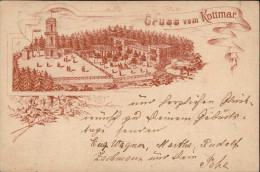 Gruss vom Kottmar.
und herzlichen Glück-
wunsch zu deinem Geburts-
tage senden
Eug. Wagner, Martha, Rudolf,
und Dein